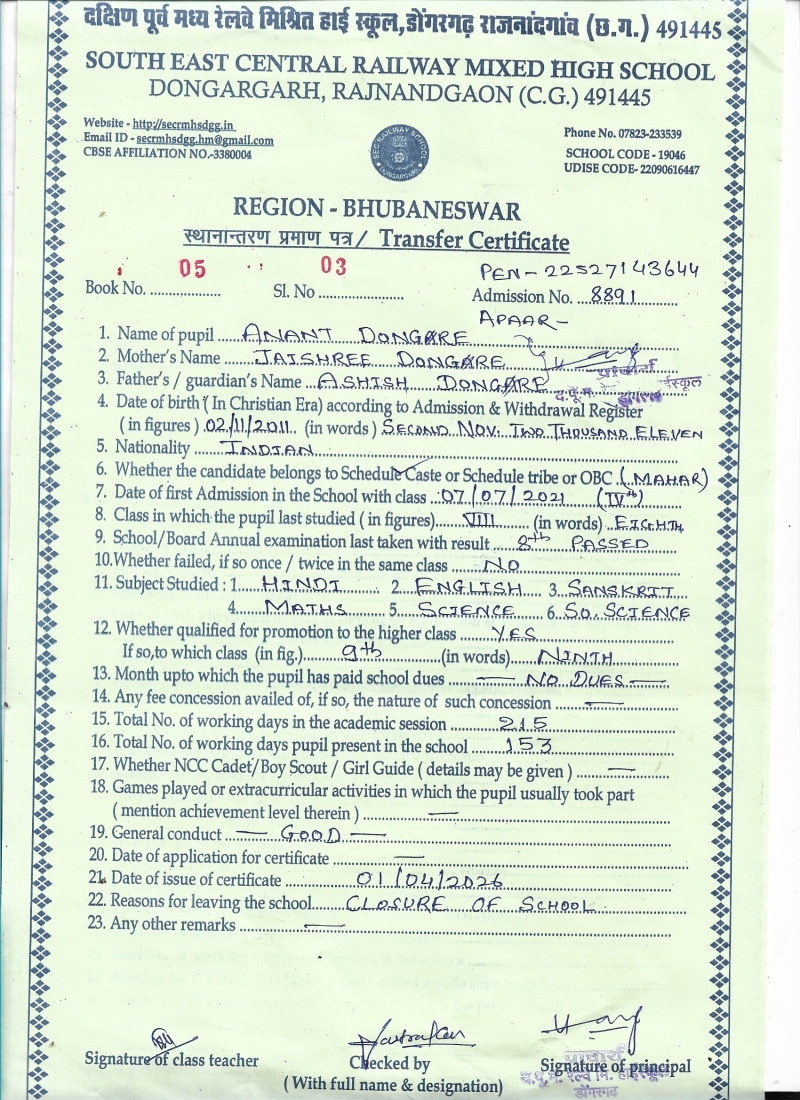 दक्षिण पूर्व मध्य रेलवे मिश्रित हाई स्कूल,डोंगरगढ़ राजनांदगांव (छ.ग.) 491445
SOUTH EAST CENTRAL RAILWAY MIXED HIGH SCHOOL
DONGARGARH, RAJNANDGAON (C.G.) 491445
Website - http://secrmhsdgg.in
Email ID - secrmhsdgg.hm@gmail.com
CBSE AFFILIATION NO.-3380004
Phone No. 07823-233539
SCHOOL CODE - 19046
UDISE CODE- 22090616447
REGION - BHUBANESWAR
स्थानान्तरण प्रमाण पत्र / Transfer Certificate
PEN- 22527143644
Book No. 05 Sl. No 03 Admission No. 8891
APAAR-
1. Name of pupil ANANT DONGARE
2. Mother's Name JAISHREE DONGARE
3. Father's / guardian's Name ASHISH DONGARE
प्राचार्य
द.पू.म. रे. हाईस्कूल
डोंगरगढ़
4. Date of birth (In Christian Era) according to Admission & Withdrawal Register
(in figures) 02/11/2011 (in words) SECOND NOV. TWO THOUSAND ELEVEN
5. Nationality INDIAN
6. Whether the candidate belongs to Schedule Caste or Schedule tribe or OBC (MAHAR)
7. Date of first Admission in the School with class 07/07/2021 (IVth)
8. Class in which the pupil last studied ( in figures) VIII (in words) EIGHTH
9. School/Board Annual examination last taken with result 8th PASSED
10. Whether failed, if so once / twice in the same class NO
11. Subject Studied : 1. HINDI 2. ENGLISH 3. SANSKRIT
4. MATHS 5. SCIENCE 6. SO. SCIENCE
12. Whether qualified for promotion to the higher class YES
If so,to which class (in fig.) 9th (in words) NINTH
13. Month upto which the pupil has paid school dues — NO DUES —
14. Any fee concession availed of, if so, the nature of such concession —
15. Total No. of working days in the academic session 215
16. Total No. of working days pupil present in the school 153
17. Whether NCC Cadet/Boy Scout / Girl Guide ( details may be given ) —
18. Games played or extracurricular activities in which the pupil usually took part
( mention achievement level therein ) —
19. General conduct — GOOD —
20. Date of application for certificate —
21. Date of issue of certificate 01/04/2026
22. Reasons for leaving the school CLOSURE OF SCHOOL
23. Any other remarks —
Signature of class teacher
Checked by
( With full name & designation)
Signature of principal
प्राचार्य
द.पू.म. रेल्वे मि. हाईस्कूल
डोंगरगढ़